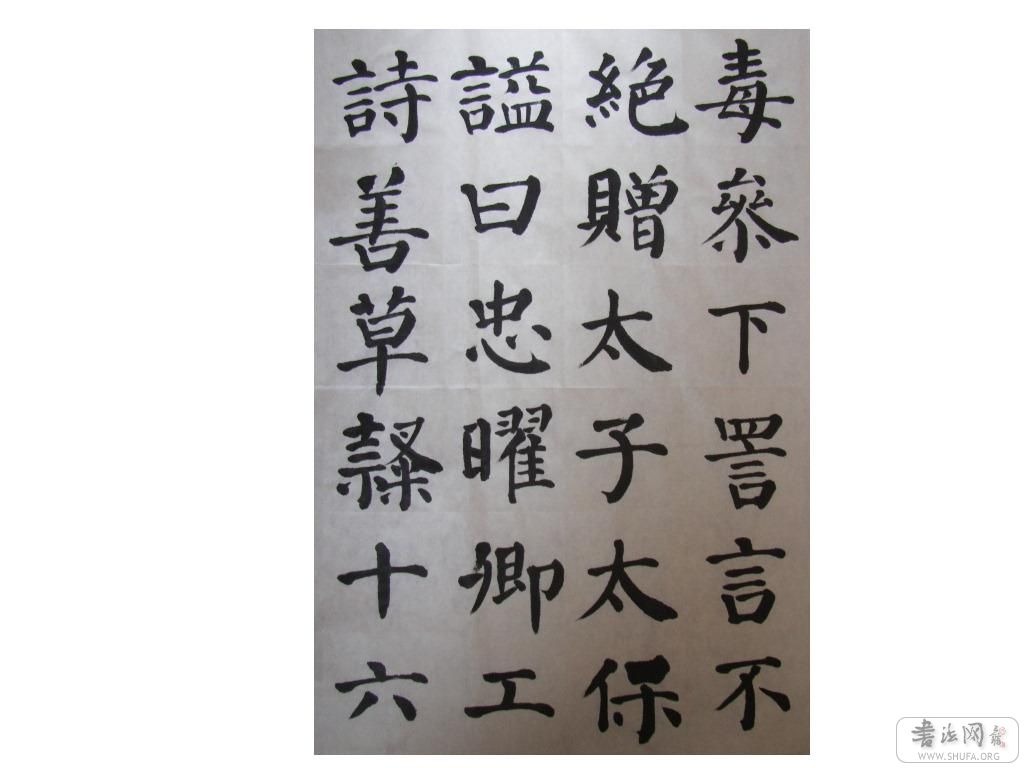 毒參下詈言不
絕贈太子太保
謚曰忠曜卿工
詩善草隸十六
書法网
WWW.SHUFA.ORG